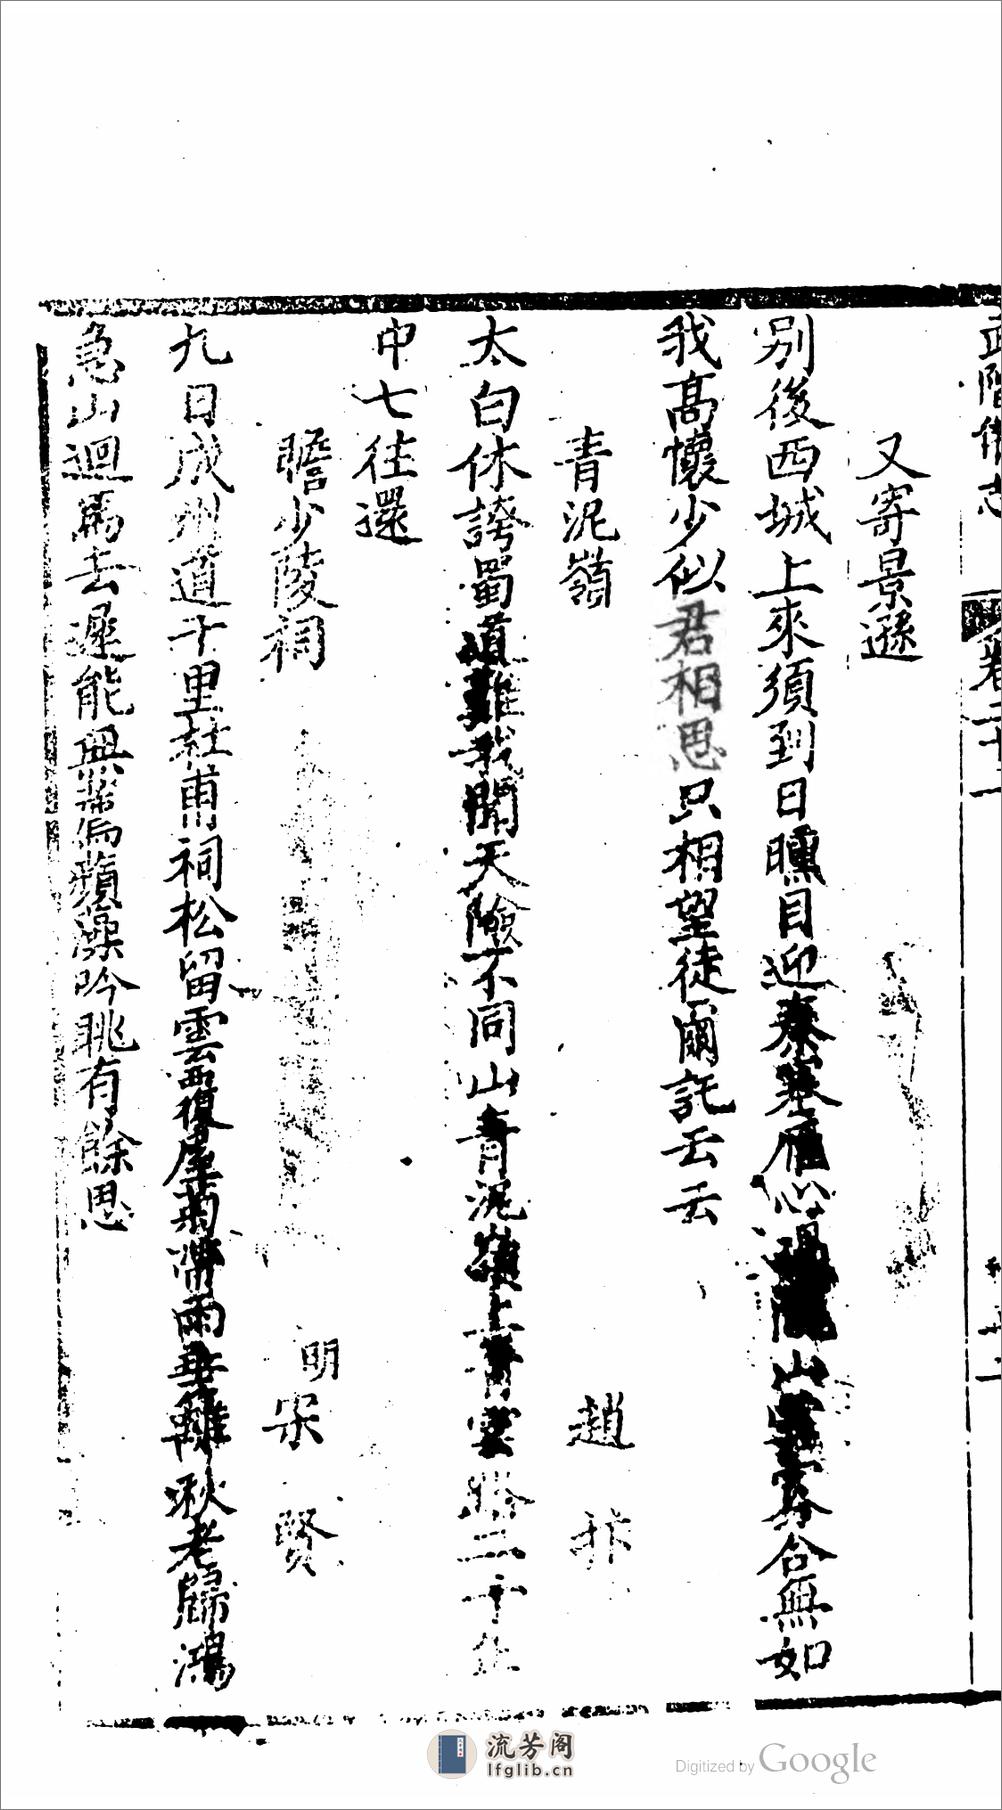 武階備志 卷二十二
又寄景遜
別後西城上來須到日曛目迎秦塞雁心 隴山雲 合無如
我高懷少似君相思只相望徒爾託云云
青泥嶺 趙抃
太白休誇蜀道難我聞天險不同山青泥嶺上青雲路二十年
中七往還
瞻少陵祠 明宋賢
九日成州道十里杜甫祠松留雲覆屋菊滯雨垂籬秋老歸鴻
急山迴馬去遲能無 蘋藻吟眺有餘思
流芳阁
lfglib.cn
Digitized by Google